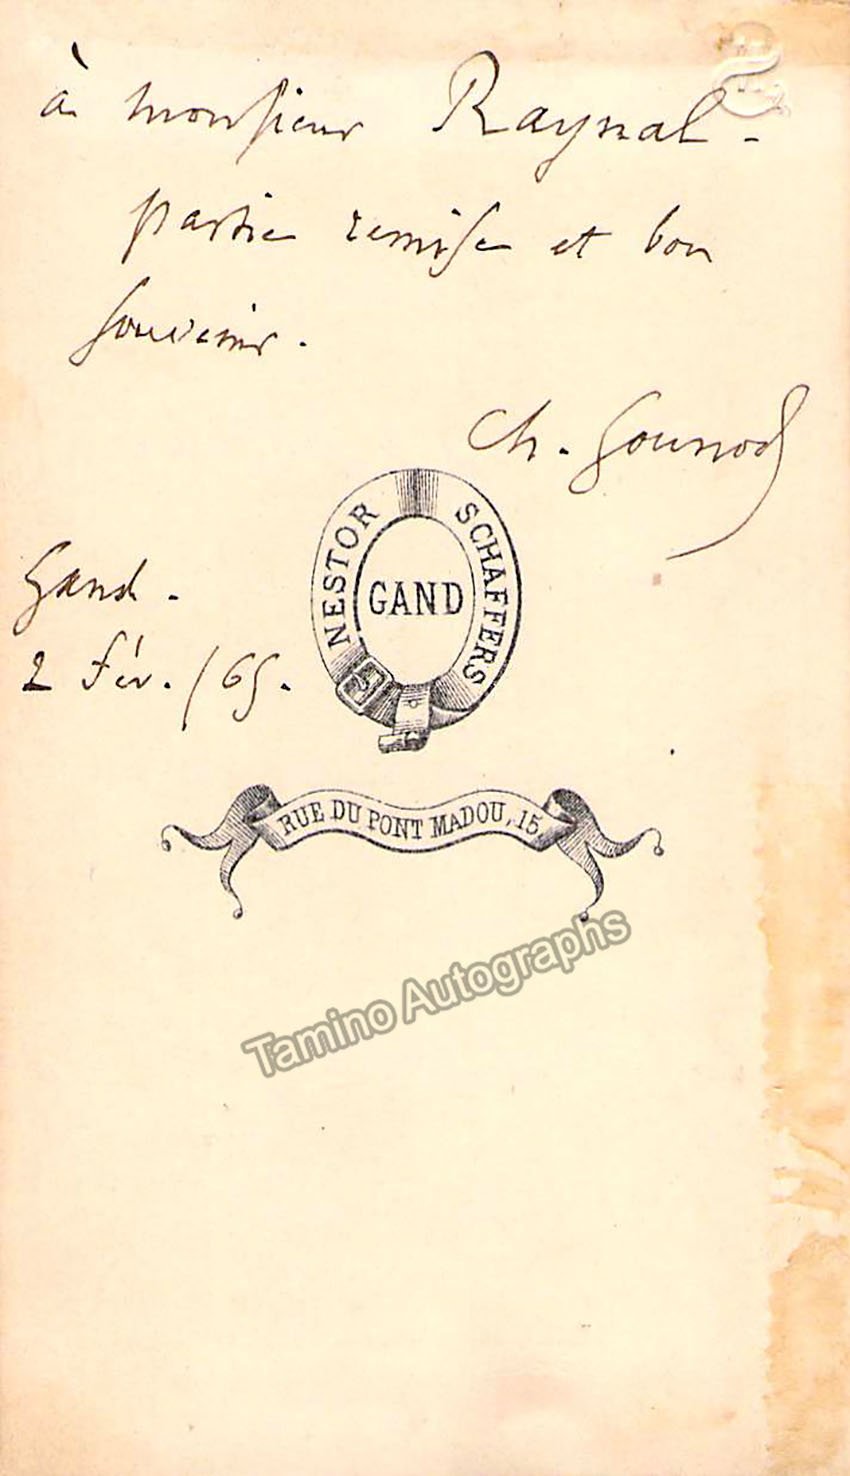 à monsieur Raynal -
partie remise et bon
souvenir.
Ch. Gounod
Gand.
2 Fév. /65.
NESTOR SCHAFFERS
GAND
RUE DU PONT MADOU, 15
Tamino Autographs